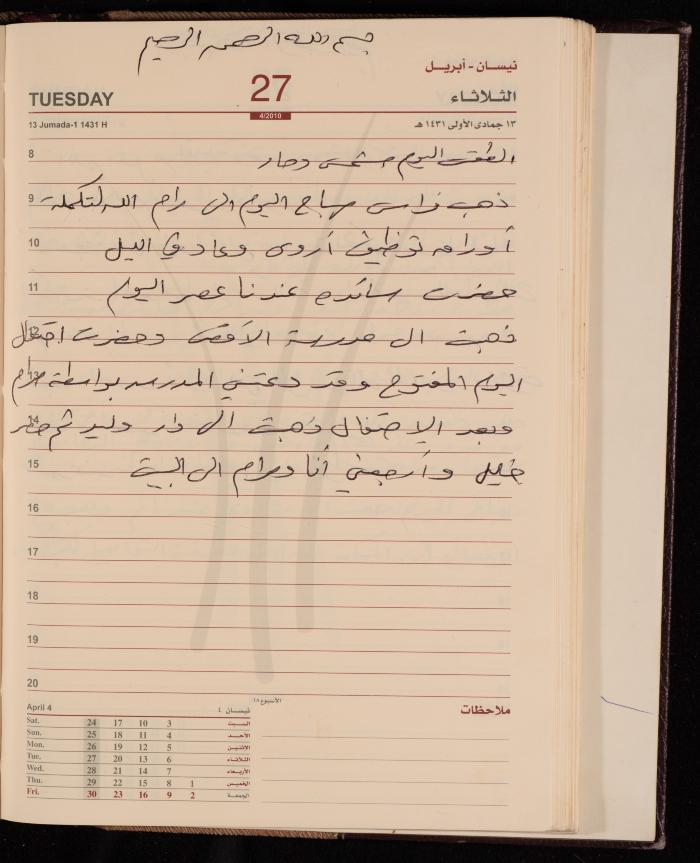 بسم الله الرحمن الرحيم
نيسان - أبريل
TUESDAY 27 الثلاثاء
4/2010
13 Jumada-1 1431 H ١٣ جمادى الأولى ١٤٣١ هـ
8 الطقس اليوم مشمس وحار
9 ذهب فراس صباح اليوم الى رام الله لتكملة
10 أوراق توظيف أروى وعاد في الليل
11 حضرت سائده عندنا عصر اليوم
12 ذهبت الى مدرسة الأقصى وحضرت احتفال
13 اليوم المفتوح وقد دعتني المدرسه بواسطة مرام
14 وبعد الاحتفال ذهبت الى دار وليد ثم حضر
15 خليل وأرجعني أنا ومرام الى البيت
16
17
18
19
20
April 4 نيسان ٤
Sat. 24 17 10 3 السبت
Sun. 25 18 11 4 الأحد
Mon. 26 19 12 5 الإثنين
Tue. 27 20 13 6 الثلاثاء
Wed. 28 21 14 7 الأربعاء
Thu. 29 22 15 8 1 الخميس
Fri. 30 23 16 9 2 الجمعة
الأسبوع ١٨
ملاحظات